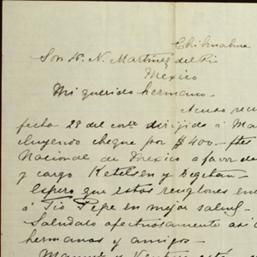 Chihuahua
Sor. D. N. Martinez del Rio
Mexico
Mi querido hermano.
Acuso reci
fecha 28 del corte. dirijido á Ma
cluyendo cheque por $400.- ftes
Nacional de Mexico a favor de
y cargo Ketelsen y Degetau
Espero que estos renglones enc
á Tio Pepe en mejor salud.
Saludalo afectuosamente asi c
hermanas y amigos.